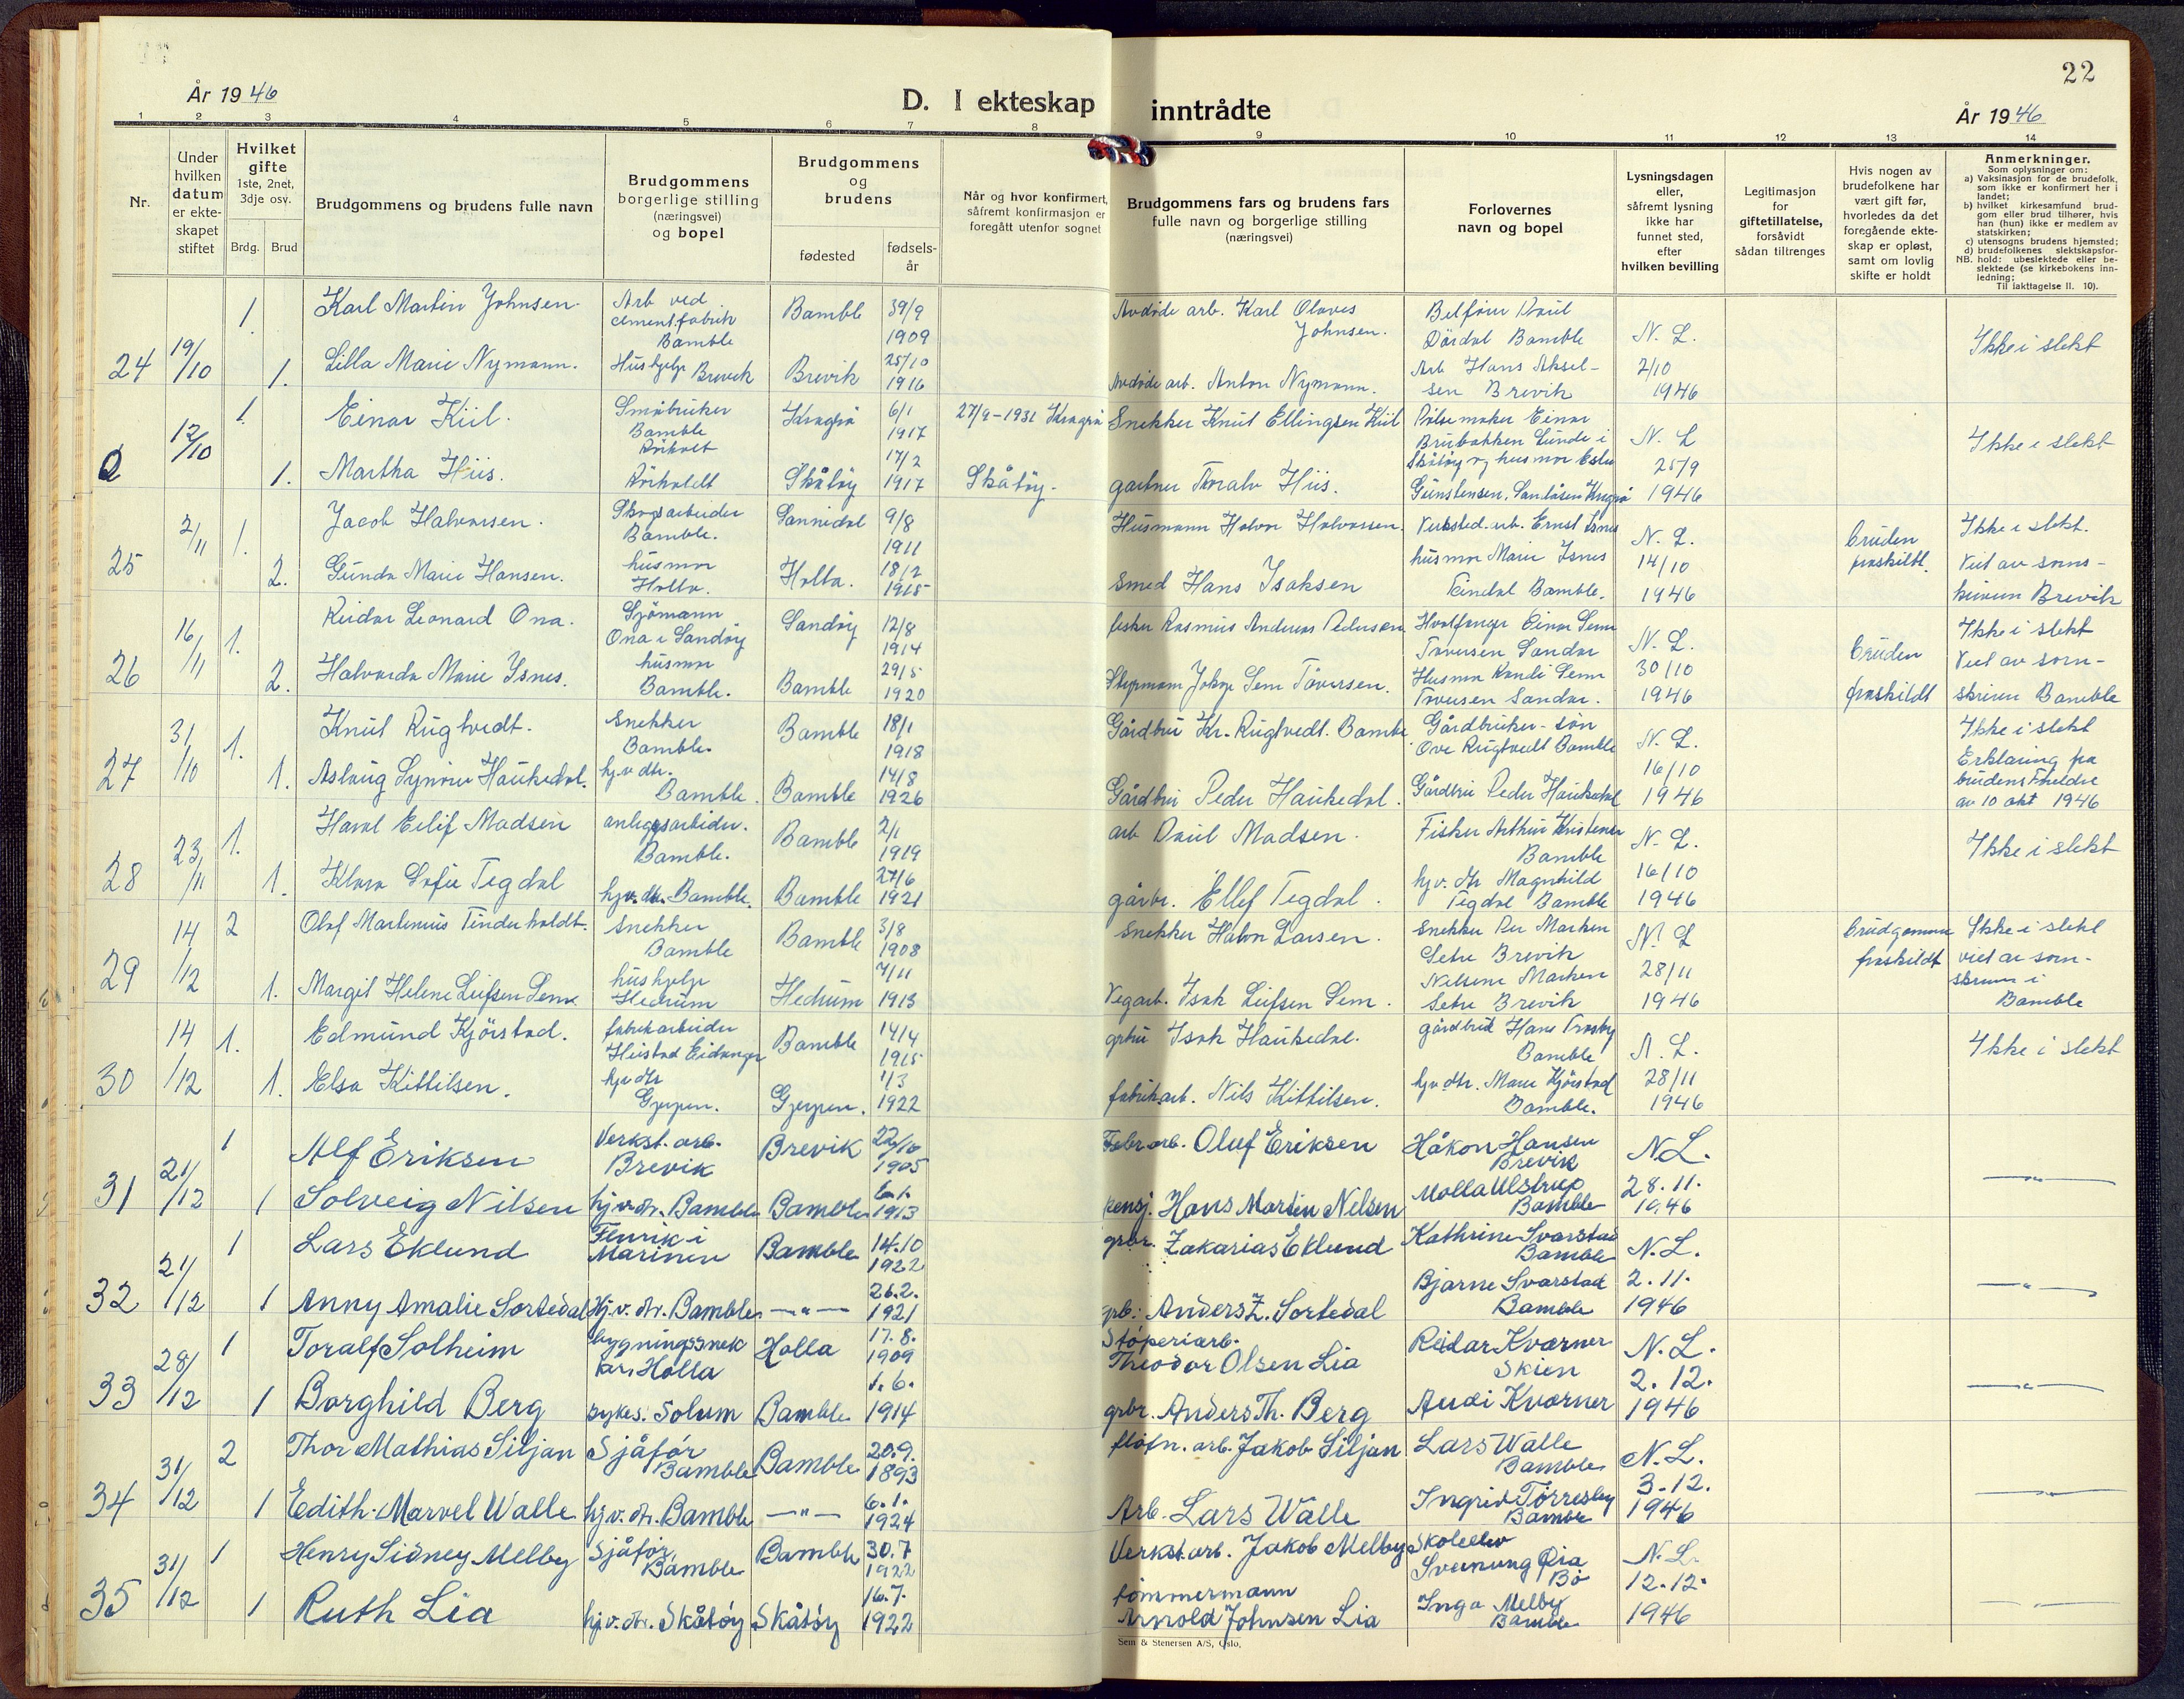 22
År 1946
D. I ekteskap inntrådte
År 1946
1 2 3 4 5 6 7 8 9 10 11 12 13 14
Nr.
Under
hvilken
datum
er ekte-
skapet
stiftet
Hvilket
gifte
1ste, 2net,
3dje osv.
Brdg. Brud
Brudgommens og brudens fulle navn
Brudgommens
borgerlige stilling
(næringsvei)
og bopel
Brudgommens
og
brudens
fødested
fødsels-
år
Når og hvor konfirmert,
såfremt konfirmasjon er
foregått utenfor sognet
Brudgommens fars og brudens fars
fulle navn og borgerlige stilling
(næringsvei)
Forlovernes
navn og bopel
Lysningsdagen
eller,
såfremt lysning
ikke har
funnet sted,
efter
hvilken bevilling
Legitimasjon
for
giftetillatelse,
forsåvidt
sådan tiltrenges
Hvis nogen av
brudefolkene har
vært gift før,
hvorledes da det
foregående ekte-
skap er opløst,
samt om lovlig
skifte er holdt
Anmerkninger.
Som oplysninger om:
a) Vaksinasjon for de brudefolk,
som ikke er konfirmert her i
landet;
b) hvilket kirkesamfund brud-
gom eller brud tilhører, hvis
han (hun) ikke er medlem av
statskirken;
c) utensogns brudens hjemsted;
d) brudefolkenes slektskapsfor-
NB. hold: ubeslektede eller be-
slektede (se kirkebokens inn-
ledning;
Til iakttagelse II. 10).
24 19/10
1. Karl Martin Johnsen
Arb ved
cementfabrik
Bamble
Bamble 39/9
1909
Avdøde arb. Karl Olaves
Johnsen.
Dördal Bamble
N. L.
2/10
1946
Ikke i slekt
1. Lilla Marie Nymann.
Hushjelp Brevik
Brevik 25/10
1916
Avdøde arb. Anton Nymann.
Arb Hans Aksel-
sen Brevik
12/10
1. Einar Kiil.
Småbruker
Bamble
Kragrø 6/1
1917
27/9-1931 Kragrø
Snekker Knut Ellingsen Kiil
N. L
25/9
1946
Ikke i slekt
1. Martha Hiis.
Skåtøy 17/2
1917
Skåtøy.
gartner Thoralv Hiis.
25 2/11
1. Jacob Halvorsen.
Skogsarbeider
Bamble.
Sannidal 9/8
1911
Husmann Halvor Halvorsen.
Verksted.arb. Ernst Isnes
husmor Marie Isnes
Bamble.
N. L.
14/10
1946
bruden
fraskildt.
Ikke i slekt.
Viet av sorens-
kriveren Brevik
2. Gunda Marie Hansen.
husmor
Holla.
Holla. 18/2
1915
Smed Hans Isaksen
26 16/11
1. Reidar Leonard Ona.
Sjømann
Ona i Sandøy
Sandøy 12/8
1914
fisker Rasmus Andreas Pedersen
Hvalfanger Einar Sem
Toversen Sandar
N. L.
30/10
1946
bruden
fraskildt
Ikke i slekt
Viet av soren-
skriven Bamble
2. Halvarda Marie Isnes.
husmor
Bamble.
Bamble 29/5
1920
Sem Toversen.
Husmor Randi Sem
Toversen Sandar.
27 31/10
1. Knut Rugtvedt.
Snekker
Bamble.
Bamble 18/1
1918
Gårdbru Kr. Rugtvedt. Bamble
Gårdbruker-søn
Ove Rugtvedt Bamble
N. L.
16/10
1946
Ikke i slekt
Erklæring fra
brudens foreldre
av 10 okt 1946
1. Aslaug Synøve Haukedal.
hj.v dtr.
Bamble.
Bamble 14/8
1926
Gårdbru Peder Haukedal.
Gårdbru Peder Haukedal
28 23/11
1. Haral Eilif Madsen
anleggsarbeider.
Bamble.
Bamble 2/1
1919
arb Paul Madsen.
Fisker Arthur Kristensen
Bamble
N. L.
16/10
1946
Ikke i slekt
1. Klara Sofie Tegdal
hj.v. dtr. Bamble.
Bamble 27/6
1921
gårbr. Ellef Tegdal.
hj.v. dtr Magnhild
Tegdal Bamble
29 14/12
2 Olaf Martinius Tinderholdt.
Snekker
Bamble
Bamble 3/8
1908
Snekker Halvor Larsen.
Snekker Per Marken
Setre Brevik
N. L
28/11
1946
brudgommen
fraskildt
Ikke i slekt
viet av soren-
skriven i
Bamble
1. Margit Helene Leifsen Sem
hushjelp
Hedrum
Hedrum 7/11
1913
Vegarb. Isak Leifsen Sem.
Nilsine Marken
Setre Brevik
30 14/12
1. Edmund Kjörstad.
fabrikarbeider
Eidanger
Bamble 14/4
1915
grbru Isak Haukedal.
gårdbruk Hans Trosby
Bamble
N. L.
28/11
1946
Ikke i slekt
1. Elsa Kittilsen.
hjv dtr
Gjerpen.
Gjerpen. 1/3
1922
fabrikarb. Nils Kittilsen.
hjv.dtr. Marie Kjörstad
Bamble.
31 21/12
1 Alf Eriksen
Verkst. arb.
Brevik
Brevik 22/10
1905
Fabr.arb. Oluf Eriksen
Håkon Hansen
Brevik
N.L.
28.11.
1946
—"—
1 Solveig Nilsen
hj.v.dtr. Bamble
Bamble 6.1.
1913
pensj. Hans Martin Nilsen
Molla Ulstrup
Bamble
32 21/12
1 Lars Eklund
Fenrik i
Marinen
Bamble 14.10
1922
grbr. Zakarias Eklund
Kathrine Svarstad
Bamble
N.L.
2.11.
1946
—"—
1 Anny Amalie Sortedal
Hj.v. dtr. Bamble
—"— 26.2.
1921
grb: Anders Z. Sortedal
Bjarne Svarstad
Bamble
33 28/12
1 Toralf Solheim
bygningssnek
ker, Holla
Holla 17.8.
1909
Støperiarb.
Theodor Olsen Lia
Reidar Kværner
Skien
N.L.
2.12.
1946
—"—
1 Borghild Berg
sykes. Solum
Bamble 1.6.
1914
grbr. Anders Th. Berg
Audi Kværner
34 31/12
2 Thor Mathias Siljan
Sjåfør
Bamble
Bamble 20.9.
1893
fløtn. arb. Jakob Siljan
Lars Walle
Bamble
N.L.
3.12.
1946
—"—
1 Edith Marvel Walle
hj.v. dtr. Bamble
—"— 6.1.
1924
Arb. Lars Walle
Ingrid Tørresby
Bamble
35 31/12
1 Henry Sidney Melby
Sjåfør,
Bamble
Bamble 30.7
1922
Verkst.arb. Jakob Melby
Skoleelev
Sveinung
Bø
N.L.
12.12.
1946
—"—
1 Ruth Lia
hj.v. dtr. Skåtøy
Skåtøy 16.7.
1922
tømmermann
Arnold Johnsen Lia
Inga Melby
Bamble
Sem & Stenersen A/S, Oslo.